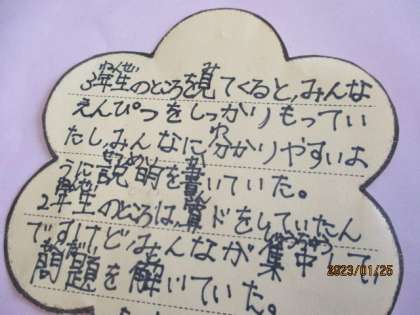 3年生のところを見てくると、みんな
えんぴつをしっかりもってい
たし、みんなに分かりやすいよ
うに説明を書いていた。
2年生のところは、算ドをしていたん
ですけど、みんなが集中して、
問題を解いていた。
2023/01/25